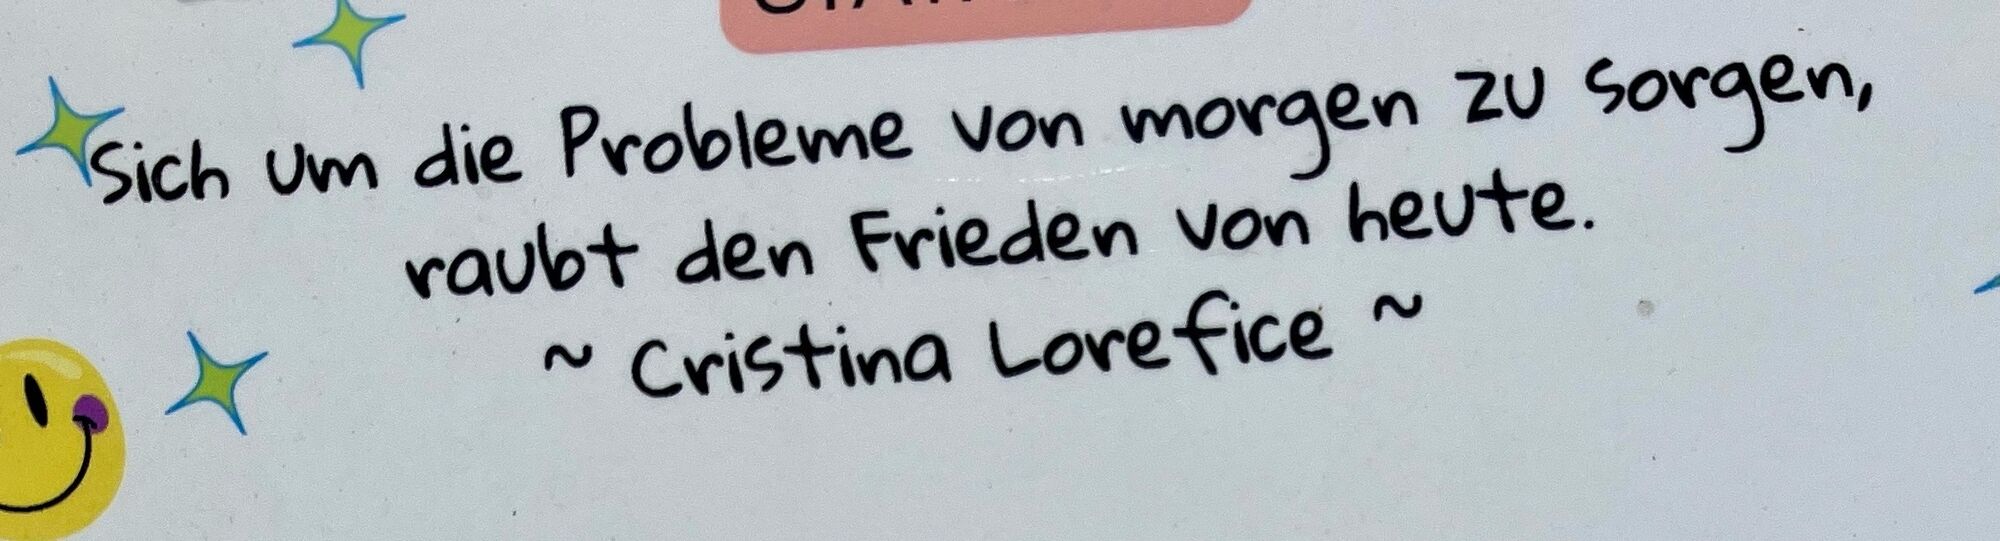 Sich um die Probleme von morgen zu sorgen,
raubt den Frieden von heute.
~ Cristina Lorefice ~